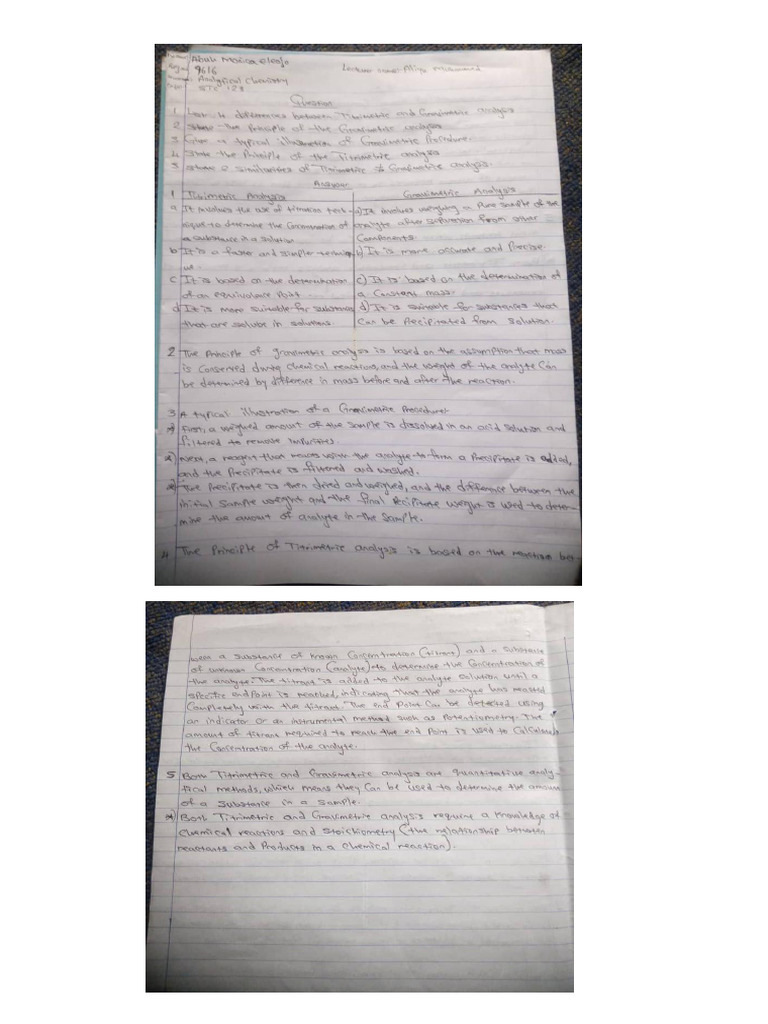 Abuh Monica eleojo
9616
Analytical Chemistry
STC 123
Lecture name Aliyu Muhammed
Question
1 List 4 differences between Titrimetric and Gravimetric analysis
2 State the Principle of the Gravimetric analysis
3 Give a typical illustration of Gravimetric Procedure.
4 State the Principle of the Titrimetric analysis
5 State 2 similarities of Titrimetric & Gravimetric analysis.
Answer
1 Titrimetric Analysis
Gravimetric Analysis
a It involves the use of titration tech-
nique to determine the Concentration of
a substance in a solution
a) It involves weighing a Pure sample of the
analyte after separation from other
Components.
b It is a faster and simpler techniq
ue.
b) It is more accurate and Precise.
c It is based on the determination
of an equivalence Point.
c) It is based on the determination of
a Constant mass.
d It is more suitable for substances
that are soluble in solutions.
d) It is suitable for substances that
Can be Precipitated from solution.
2 The Principle of gravimetric analysis is based on the assumption that mass
is Conserved during chemical reactions, and the weight of the analyte Can
be determined by difference in mass before and after the reaction.
3 A typical illustration of a Gravimetric Procedure:
First, a weighed amount of the sample is dissolved in an acid solution and
filtered to remove impurities.
Next, a reagent that reacts with the analyte to form a Precipitate is added,
and the Precipitate is filtered and washed.
The Precipitate is then dried and weighed, and the difference between the
initial Sample weight and the final Precipitate weight is used to deter-
mine the amount of analyte in the Sample.
4 The Principle of Titrimetric analysis is based on the reaction bet
ween a substance of known Concentration (titrant) and a Substance
of unknown Concentration (analyte) to determine the Concentration of
the analyte. The titrant is added to the analyte solution until a
specific endPoint is reached, indicating that the analyte has reacted
Completely with the titrant. The end Point Can be detected using
an indicator or an instrumental method such as Potentiometry. The
amount of titrant required to reach the end Point is used to Calculate
the Concentration of the analyte.
5 Both Titrimetric and Gravimetric analysis are quantitative analy-
tical methods, which means they Can be used to determine the amount
of a substance in a sample.
Both Titrimetric and Gravimetric analysis require a knowledge of
Chemical reactions and Stoichiometry (the relationship between
reactants and Products in a Chemical reaction).